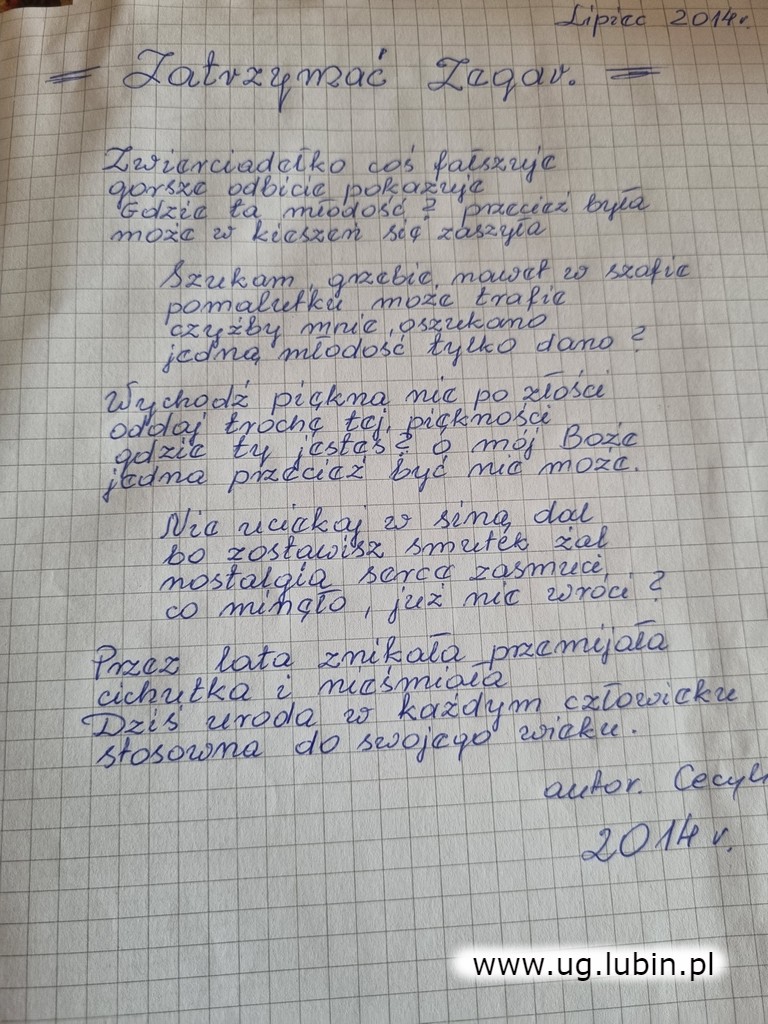 Lipiec 2014r.
= Zatrzymać Zegar. =
Zwierciadełko coś fałszuje
gorsze odbicie pokazuje
Gdzie ta młodość? przecież była
może w kieszeń się zaszyła
Szukam, grzebię, nawet w szafie
pomalutku może trafię
czyżby mnie oszukano
jedną młodość tylko dano?
Wychodź piękna nie po złości
oddaj trochę tej piękności
gdzie ty jesteś? o mój Boże
jedna przecież być nie może.
Nie uciekaj w siną dal
bo zostawisz smutek żal
nostalgia serce zasmuci
co minęło, już nie wróci?
Przez lata znikała przemijała
cichutka i nieśmiała
Dziś uroda w każdym człowieku
stosowna do swojego wieku.
autor.
2014 r.
www.ug.lubin.pl